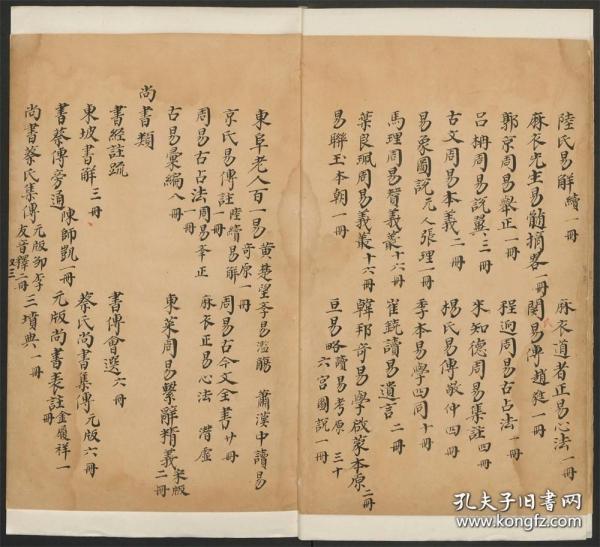 陸氏易解 續一冊 麻衣道者正易心法 一冊
麻衣先生易髓摘畧 一冊 關易傳 趙蕤一冊
郭京周易舉正 一冊 程迥周易古占法 一冊
呂枏周易說翼 三冊 來知德周易集註 四冊
古文周易本義 二冊 楊氏易傳 敬仲四冊
易象圖說 元人張理一冊 季本易學四同 十冊
馬理周易贊義叢 十六冊 崔銑讀易遺言 二冊
葉良珮周易義叢 十六冊 韓邦奇易學啟蒙本原 二冊
易聯玉 本朝一冊 亘易略 讀易考原 三十六宮圖說 一冊
東阜老人百一易 黃楚望季易濫觴 蕭漢中讀易考原 一冊
京氏易傳註 陸續易解 一冊 周易古今文全書 廿冊
周易古占法 周易舉正 麻衣正易心法 潛虛
古易彙編 八冊 東萊周易繫辭精義 宋版二冊
尚書類
書經註疏 書傳會選 六冊
東坡書解 三冊 蔡氏尚書集傳 元版六冊
書蔡傳旁通 陳師凱一冊 元版尚書表註 金履祥一冊
尚書蔡氏集傳 元版鄒季友音釋二冊 又三 三墳典 一冊
孔夫子旧書网
www.kongfz.com